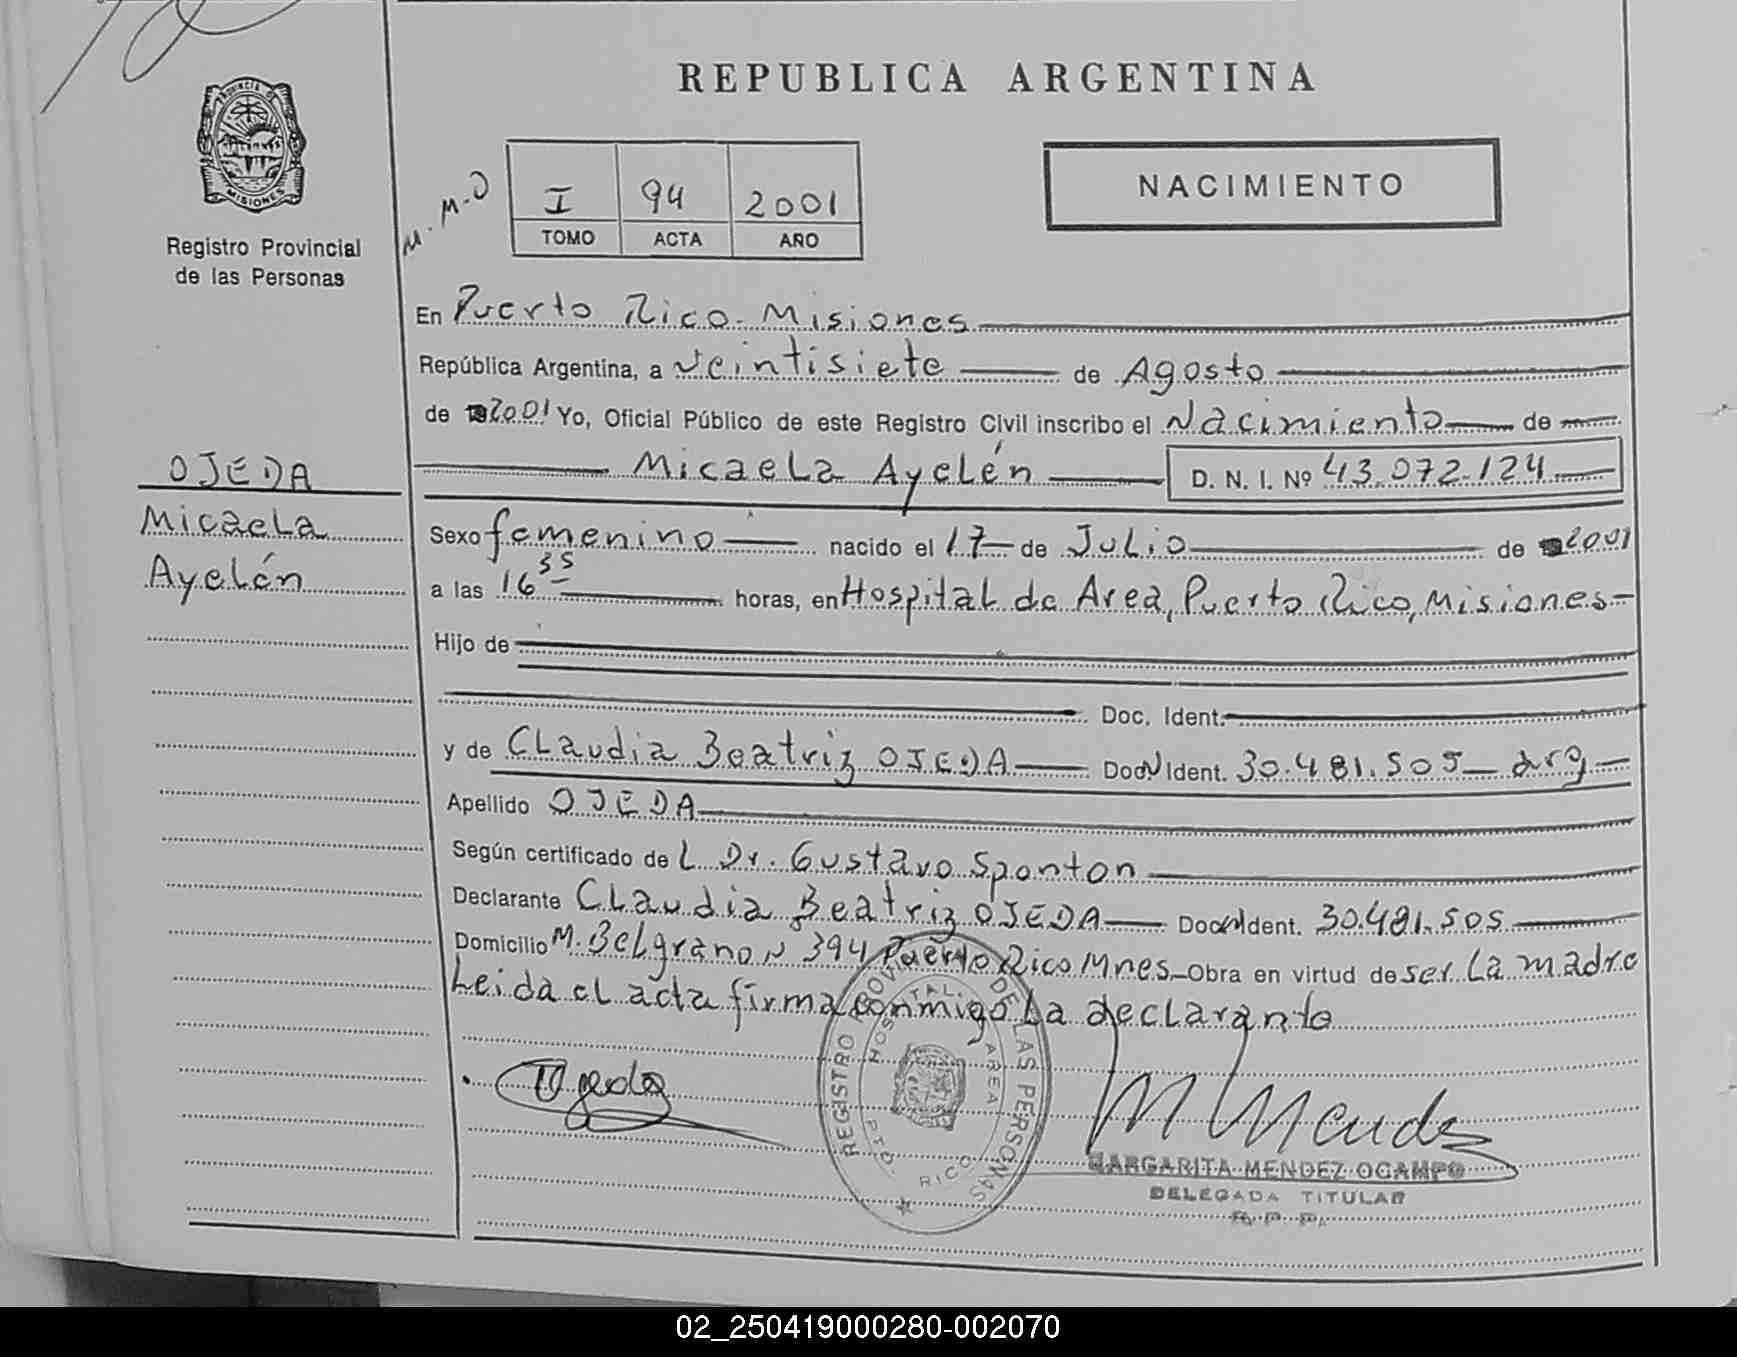 REPUBLICA ARGENTINA
PROVINCIA DE
MISIONES
Registro Provincial
de las Personas
M.M.O
I 94 2001
TOMO ACTA AÑO
NACIMIENTO
En Puerto Rico - Misiones
República Argentina, a veintisiete de Agosto
de 2001 Yo, Oficial Público de este Registro Civil inscribo el Nacimiento de
Micaela Ayelén D. N. I. Nº 43.072.124
OJEDA
Micaela
Ayelén
Sexo femenino nacido el 17 de Julio de 2001
a las 16 35 horas, en Hospital de Area, Puerto Rico, Misiones
Hijo de
Doc. Ident.
y de Claudia Beatriz OJEDA Doc N Ident. 30.481.505 arg
Apellido OJEDA
Según certificado de L Dr. Gustavo Sponton
Declarante Claudia Beatriz OJEDA Doc N Ident. 30.481.505
Domicilio M. Belgrano N 394 Puerto Rico Mnes Obra en virtud de ser La madre
Leida el acta firma conmigo La declarante
Ojeda
REGISTRO PROV. DE LAS PERSONAS
HOSPITAL AREA
PTO RICO
M Mendez
MARGARITA MENDEZ OCAMPO
DELEGADA TITULAR
R. P. P.
02_250419000280-002070